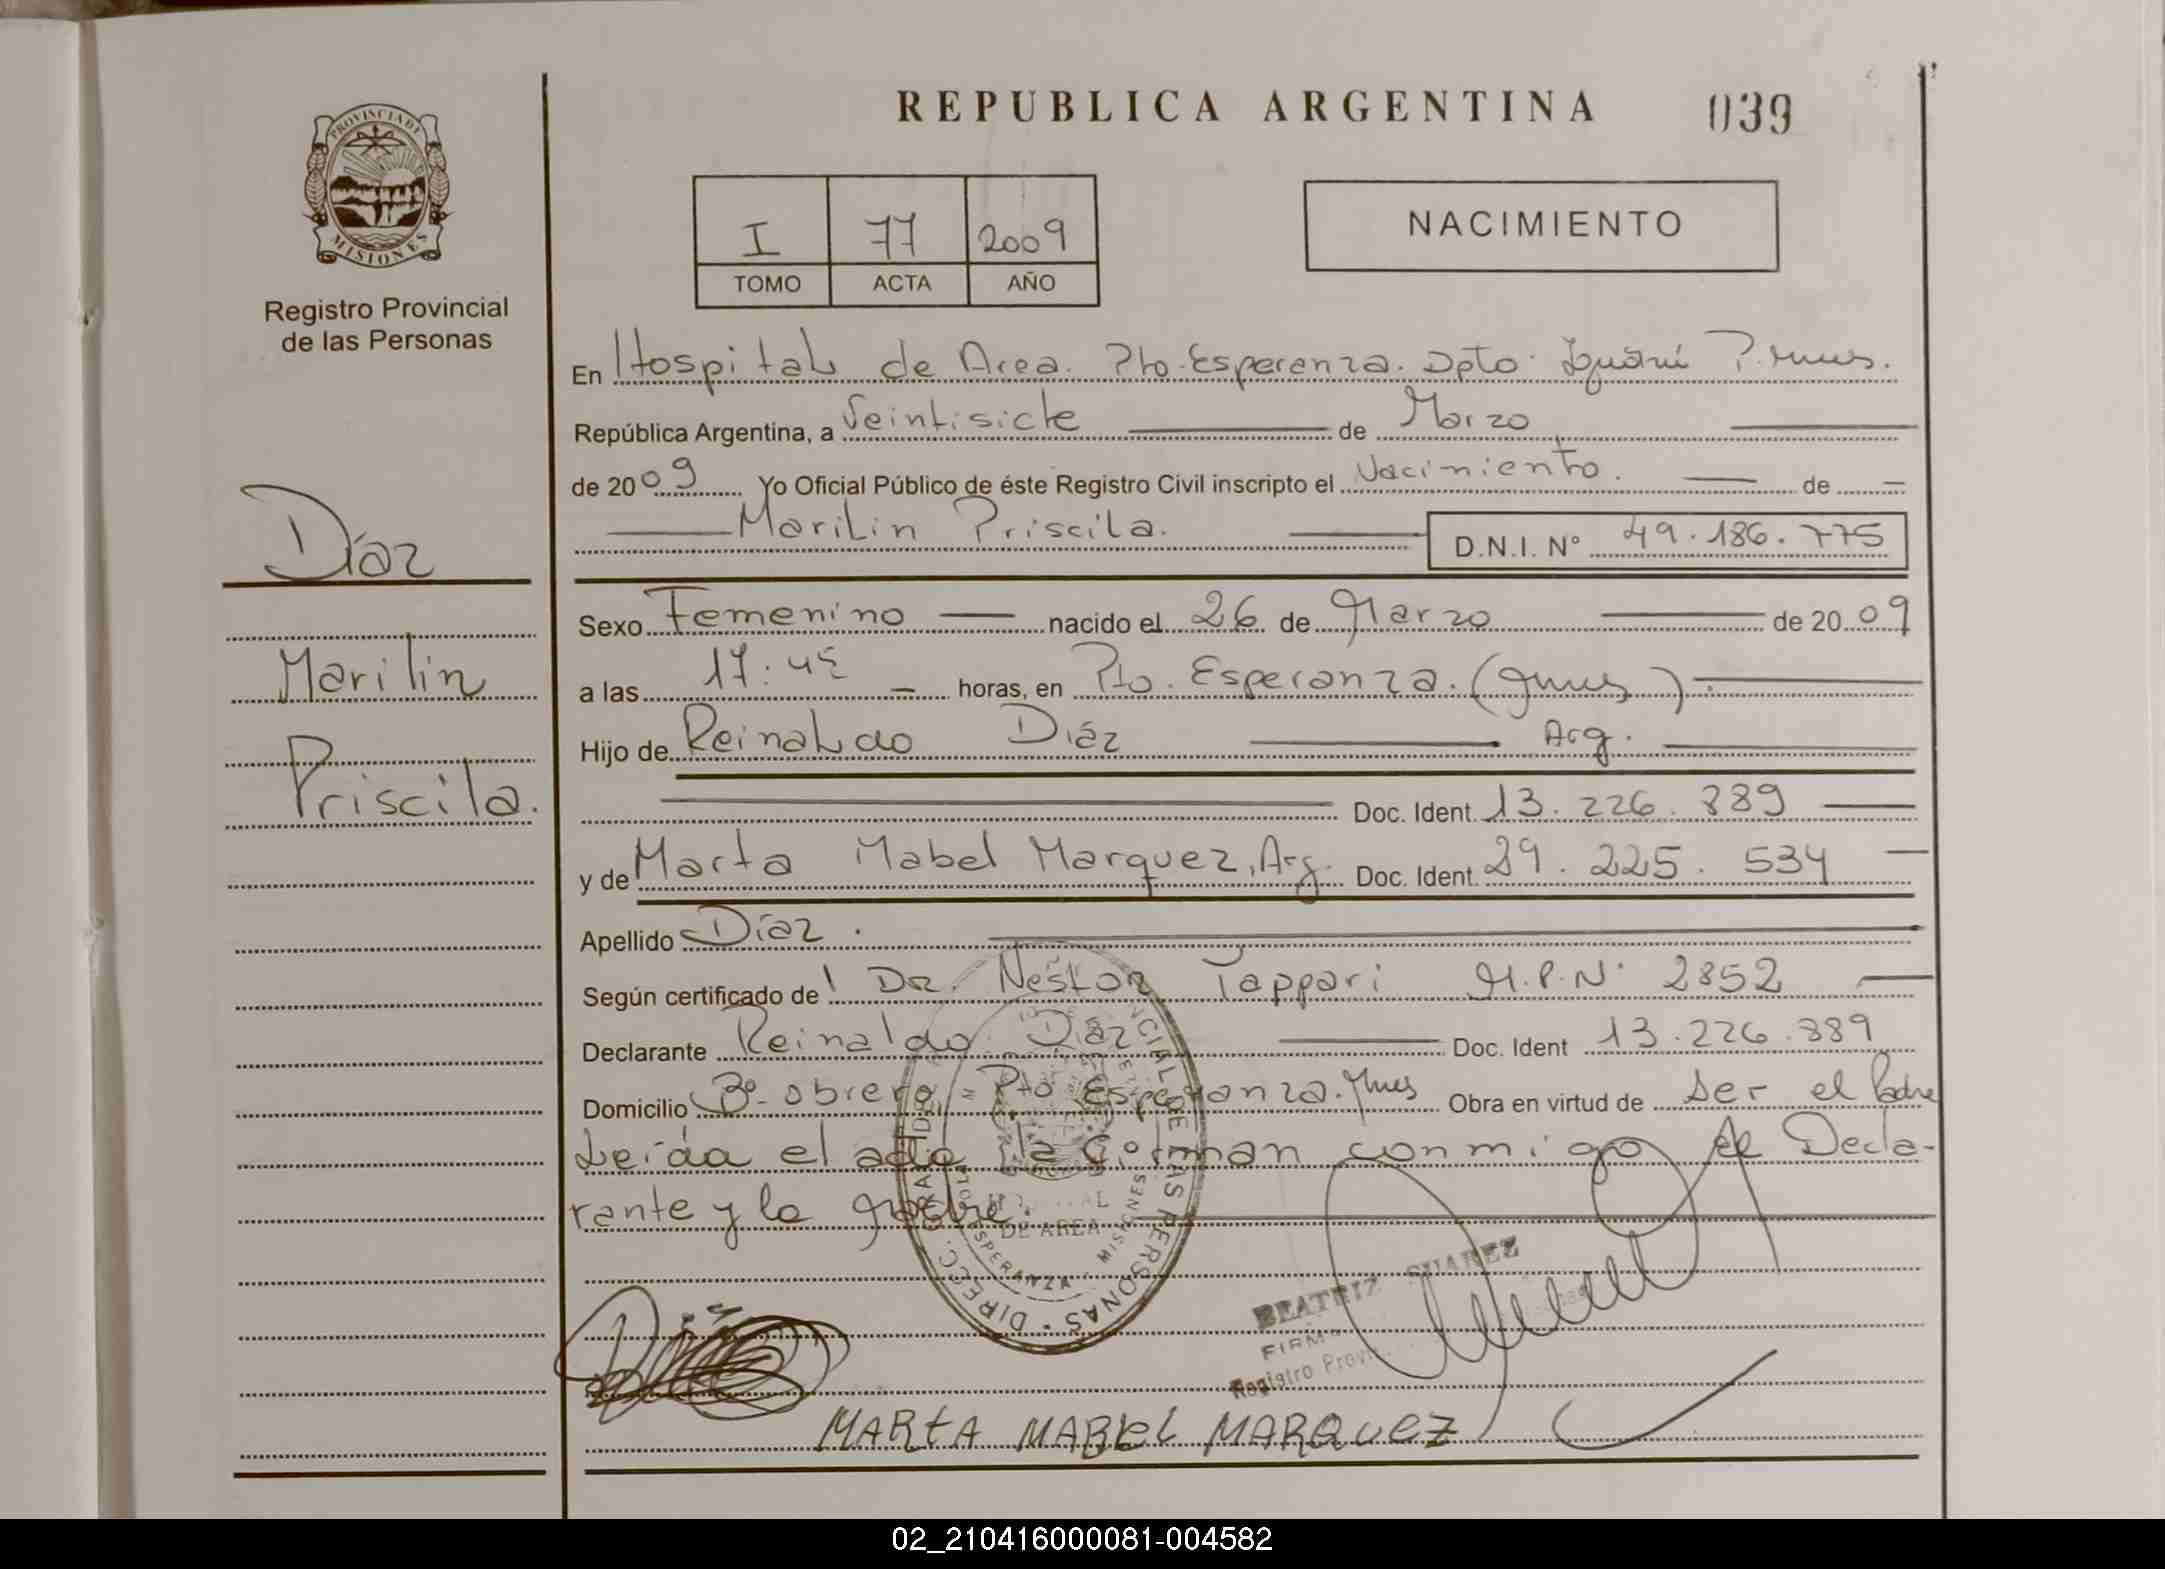 REPUBLICA ARGENTINA 039
PROVINCIA DE
MISIONES
Registro Provincial
de las Personas
I 77 2009
TOMO ACTA AÑO
NACIMIENTO
En Hospital de Area. Pto. Esperanza. Dpto. Iguazú
República Argentina, a Veintisiete de Marzo
de 2009 Yo Oficial Público de éste Registro Civil inscripto el Nacimiento. de
Marilin Priscila. D.N.I. Nº 49.186.775
Díaz
Marilin
Priscila.
Sexo Femenino nacido el 26 de Marzo de 2009
a las 17:45 horas, en Pto. Esperanza. (Mnes).
Hijo de Reinaldo Díaz Arg.
Doc. Ident. 13.226.889
y de Marta Mabel Marquez, Arg. Doc. Ident. 29.225.534
Apellido Díaz.
Según certificado de Dr. Nestor Tappari M.P.Nº 2852
Declarante Reinaldo Díaz Doc. Ident 13.226.889
Domicilio Bº Obrero, Pto Esperanza. Mnes Obra en virtud de Ser el Padre
Leída el acta la firman conmigo el Decla-
rante y la madre.
DE AREA
MISIONES
BEATRIZ SUAREZ
Registro
Díaz
MARtA MABEL MARQUEZ
02_210416000081-004582